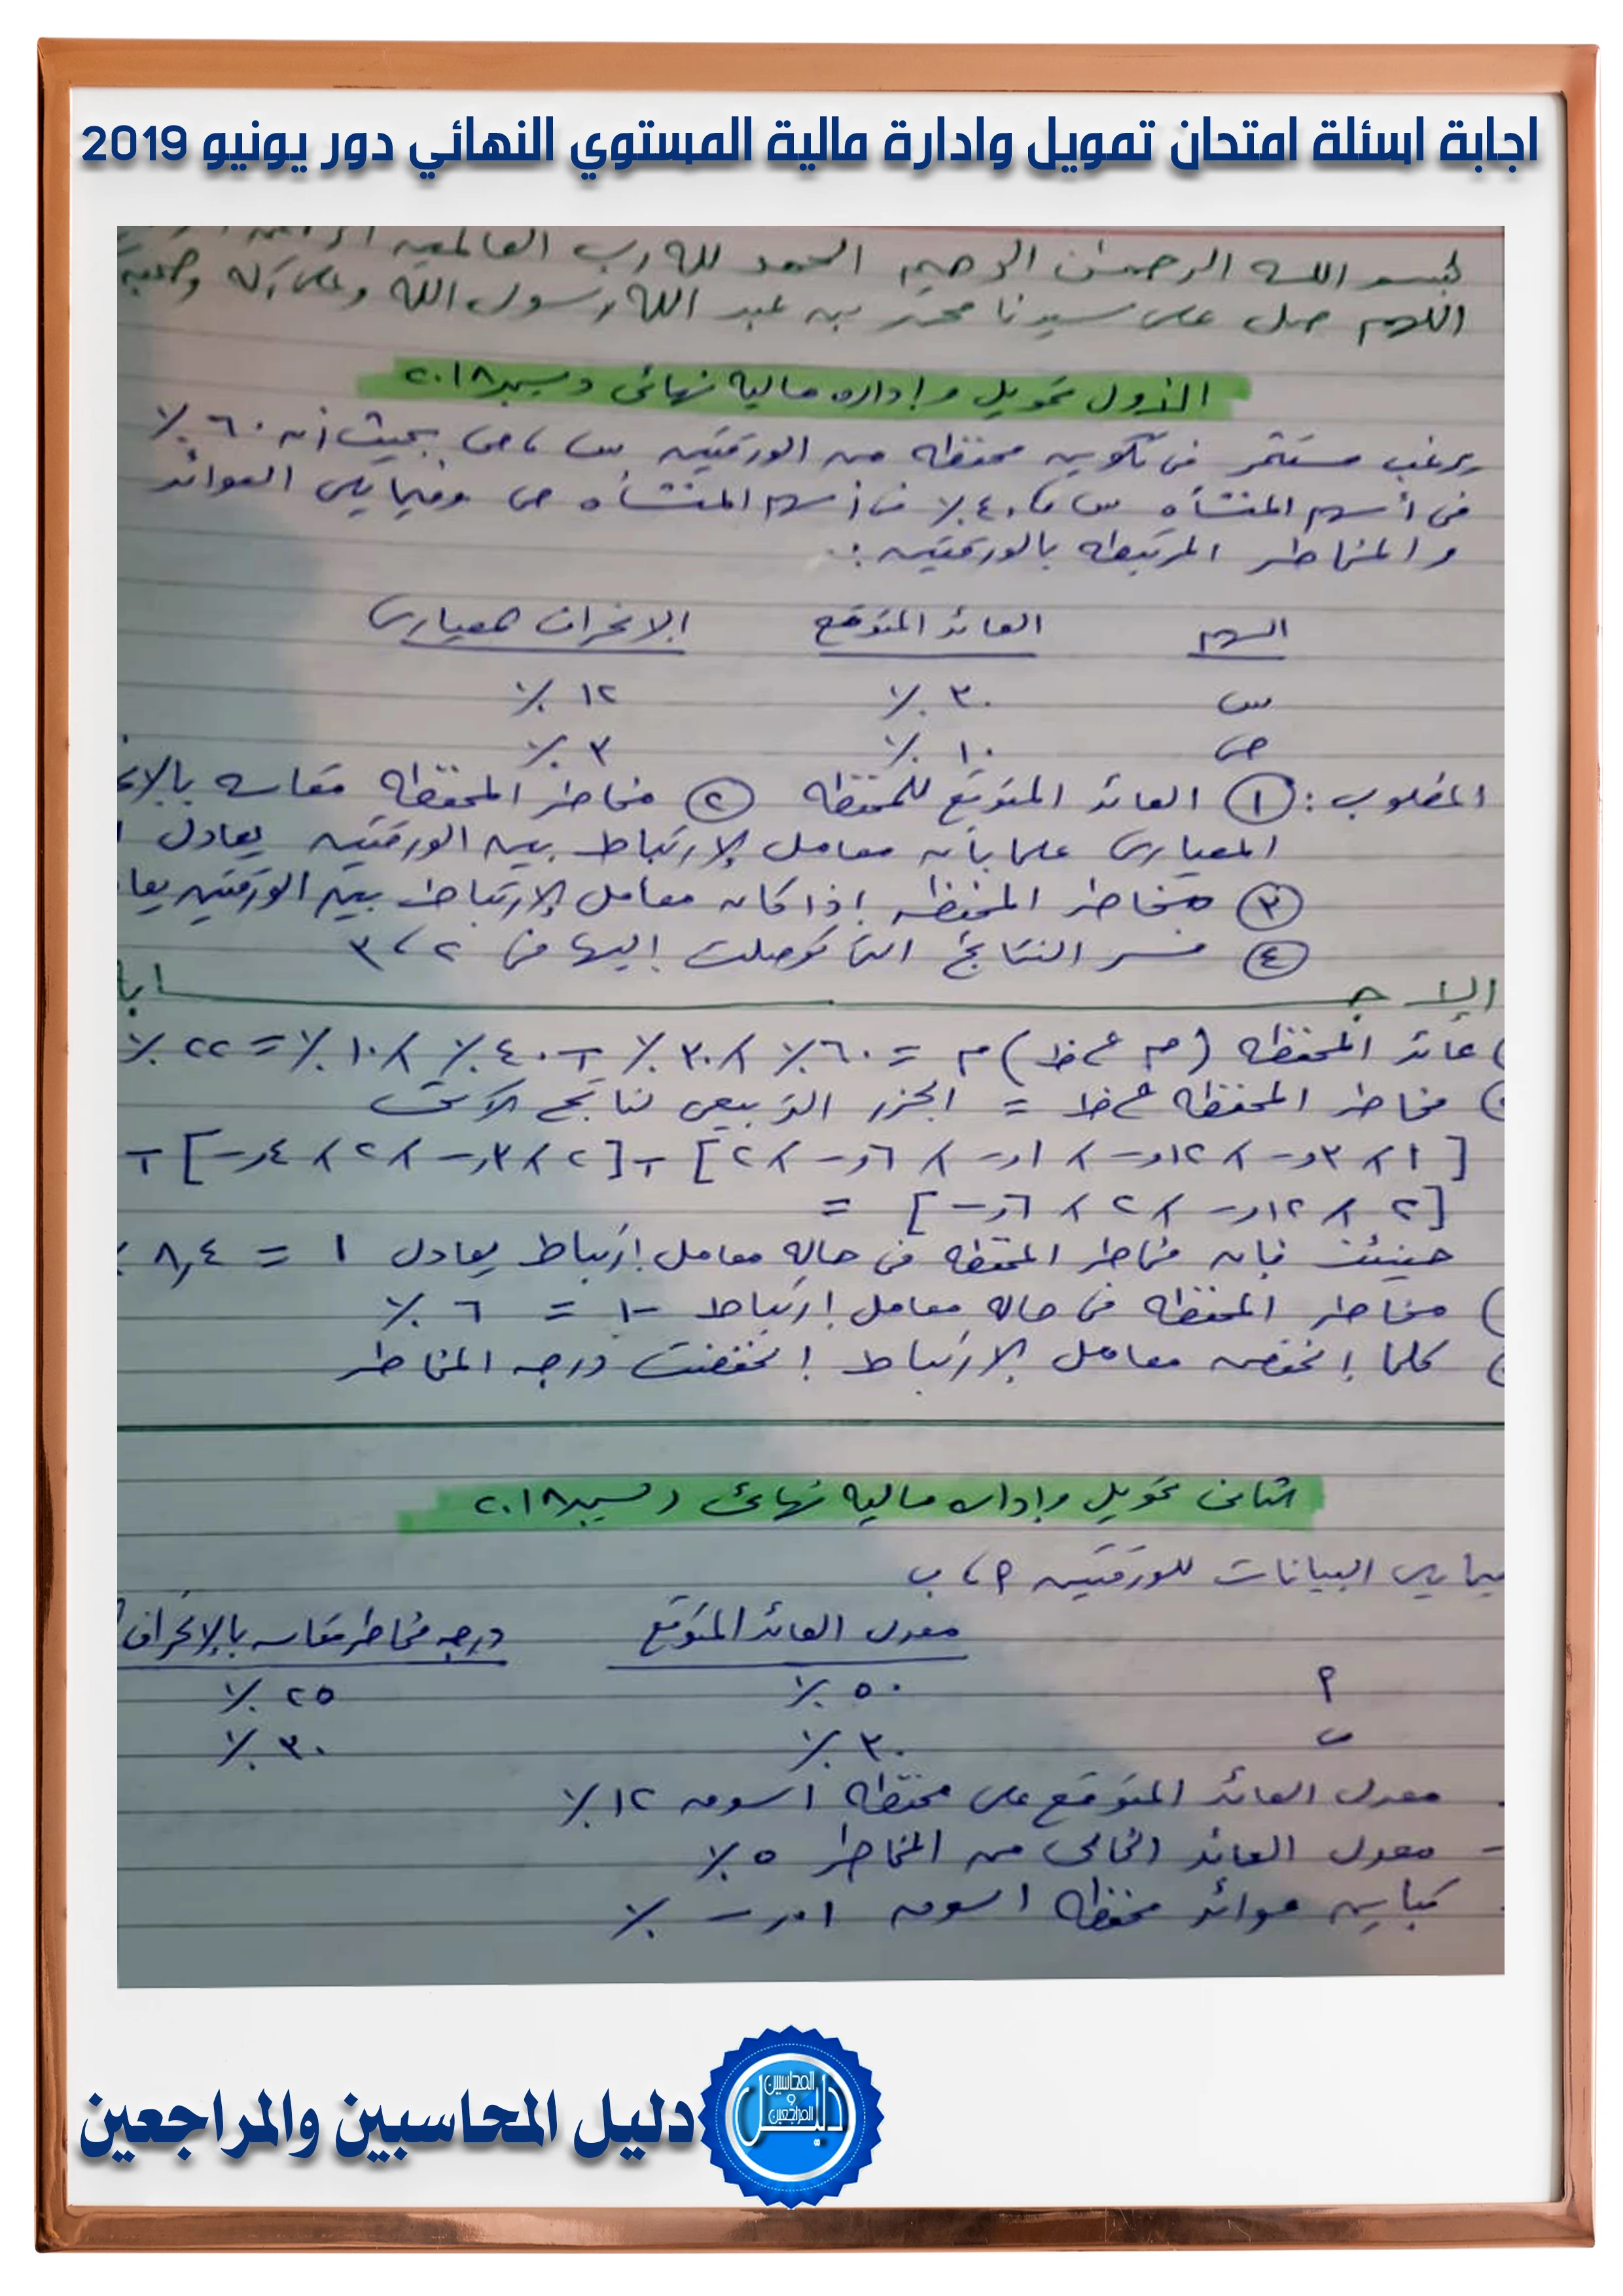 اجابة اسئلة امتحان تمويل وادارة مالية المستوي النهائي دور يونيو 2019
بسم الله الرحمن الرحيم الحمد لله رب العالمين
اللهم صل على سيدنا محمد بن عبد الله رسول الله وعلى آله وصحبه
الأول تمويل وإداره ماليه نهائى ديسمبر ٢٠١٨
يرغب مستثمر فى تكوين محفظه من الورقتين س ، ص بحيث أن ٦٠ ٪
فى أسهم المنشأه س ، ٤٠٪ فى أسهم المنشأه ص وفيما يلى العوائد
والمخاطر المرتبطه بالورقتين :
السهم العائد المتوقع الانحراف المعيارى
س ٣٠ ٪ ١٢ ٪
ص ١٠ ٪ ٣ ٪
المطلوب : ① العائد المتوقع للمحفظه ② مخاطر المحفظه مقاسه
المعيارى علما بأن معامل الإرتباط بين الورقتين يعادل
③ مخاطر المحفظه إذا كان معامل الإرتباط بين الورقتين
④ فسر النتائج التى توصلت إليها فى ٢ ، ٣
عائد المحفظه = ٦٠٪ × ٣٠ ٪ + ٤٠ ٪ × ١٠ ٪ = ٢٢ ٪
مخاطر المحفظه = الجزر التربيعى لناتج الآتى
حينئذ فإن مخاطر المحفظه فى حاله معامل إرتباط يعادل ١ = ٨,٤
مخاطر المحفظه فى حاله معامل إرتباط -١ = ٦ ٪
كلما إنخفض معامل الإرتباط إنخفضت درجه المخاطر
الثانى تمويل وإداره ماليه نهائى ديسمبر ٢٠١٨
البيانات للورقتين أ ، ب
معدل العائد المتوقع درجه مخاطر مقاسه بالإنحراف
أ ٥٠ ٪ ٢٥ ٪
ب ٣٠ ٪ ٣٠ ٪
معدل العائد المتوقع على محفظه السوق ١٢ ٪
- معدل العائد الخالى من المخاطر ٥ ٪
تباين عوائد محفظه السوق
دليل المحاسبين والمراجعين
دليل
المحاسبين
و
المراجعين